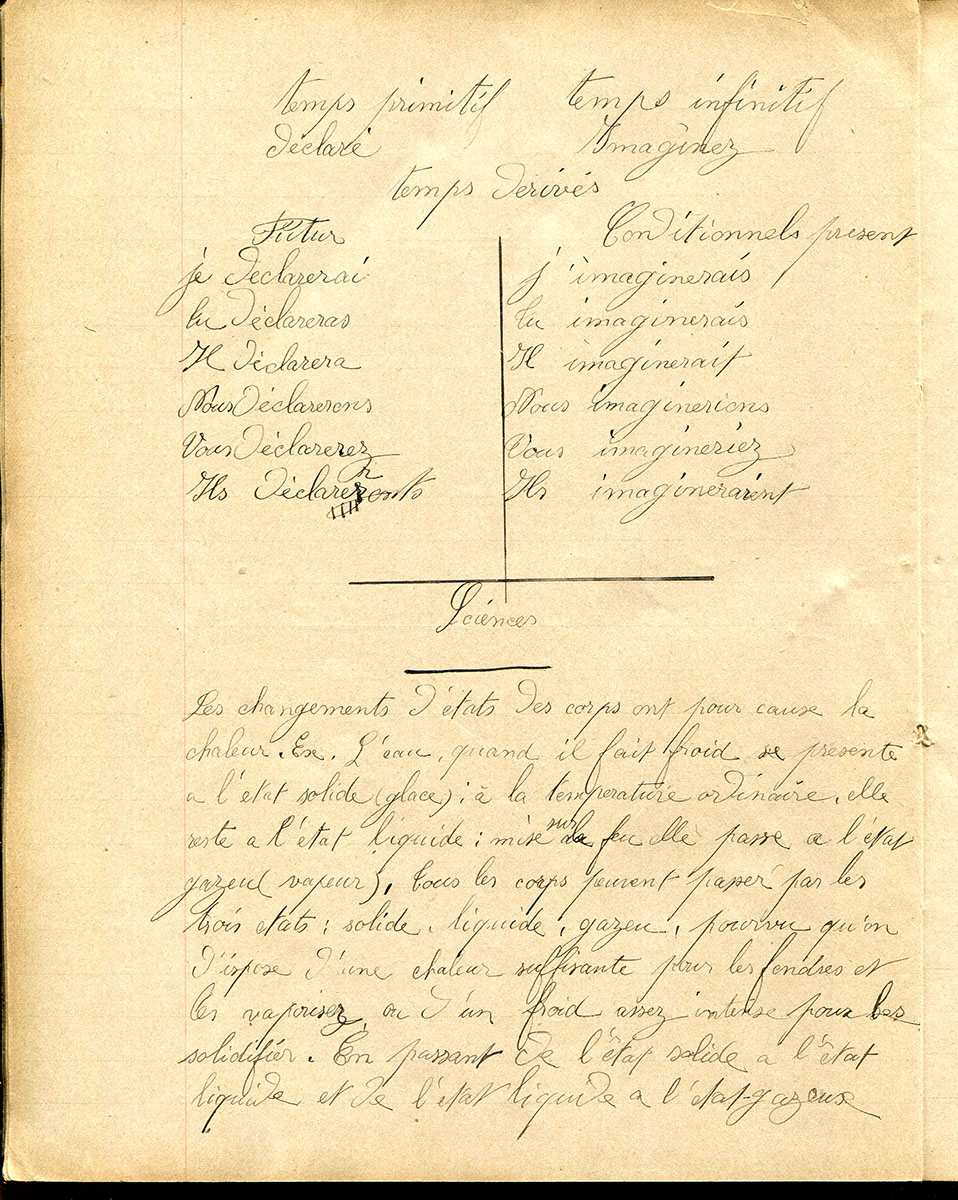 temps primitif temps infinitif
Déclaré Imaginez
temps derivés
Futur Conditionnels présent
je déclarerai j'imaginerais
tu déclareras tu imaginerais
Il déclarera Il imaginerait
Nous déclarerons Nous imaginerions
Vous déclarerez Vous imagineriez
Ils déclareronts Ils imagineraient
Sciences
Les changements d'états des corps ont pour cause la
chaleur. Ex. L'eau, quand il fait froid se presente
a l'état solide (glace); à la temperature ordinaire, elle
reste a l'état liquide; mise sur le feu elle passe a l'état
gazeu (vapeur), tous les corps peuvent passer par les
trois etats: solide, liquide, gazeu, pourvu qu'on
dispose d'une chaleur suffisante pour les fondres et
les vaporisez, ou d'un froid assez intense pour les
solidifier. En passant de l'état solide a l'état
liquide et de l'état liquide a l'état gazeux